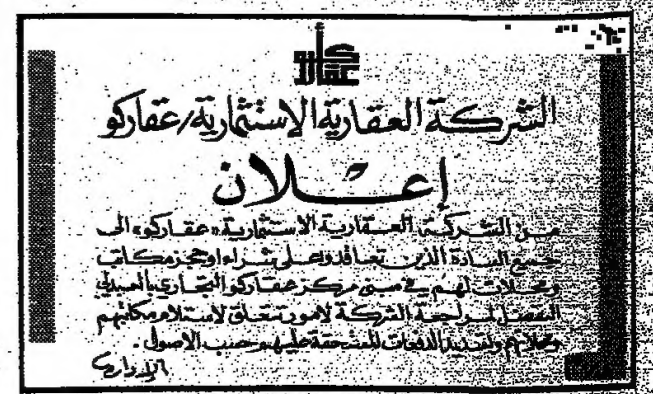 عقاركو
الشركة العقارية الاستثمارية/عقاركو
إعلان
من الشركة العقارية الاستثمارية «عقاركو» الى
جميع السادة الذين تعاقدوا على شراء او حجز مكاتب
ومحلات لهم في مبنى مركز عقاركو التجاري بالعبدلي
التفضل لمراجعة الشركة لامور تتعلق لاستلام مكاتبهم
ومحلاتهم ولتسديد الدفعات المستحقة عليهم حسب الاصول .
الإدارة